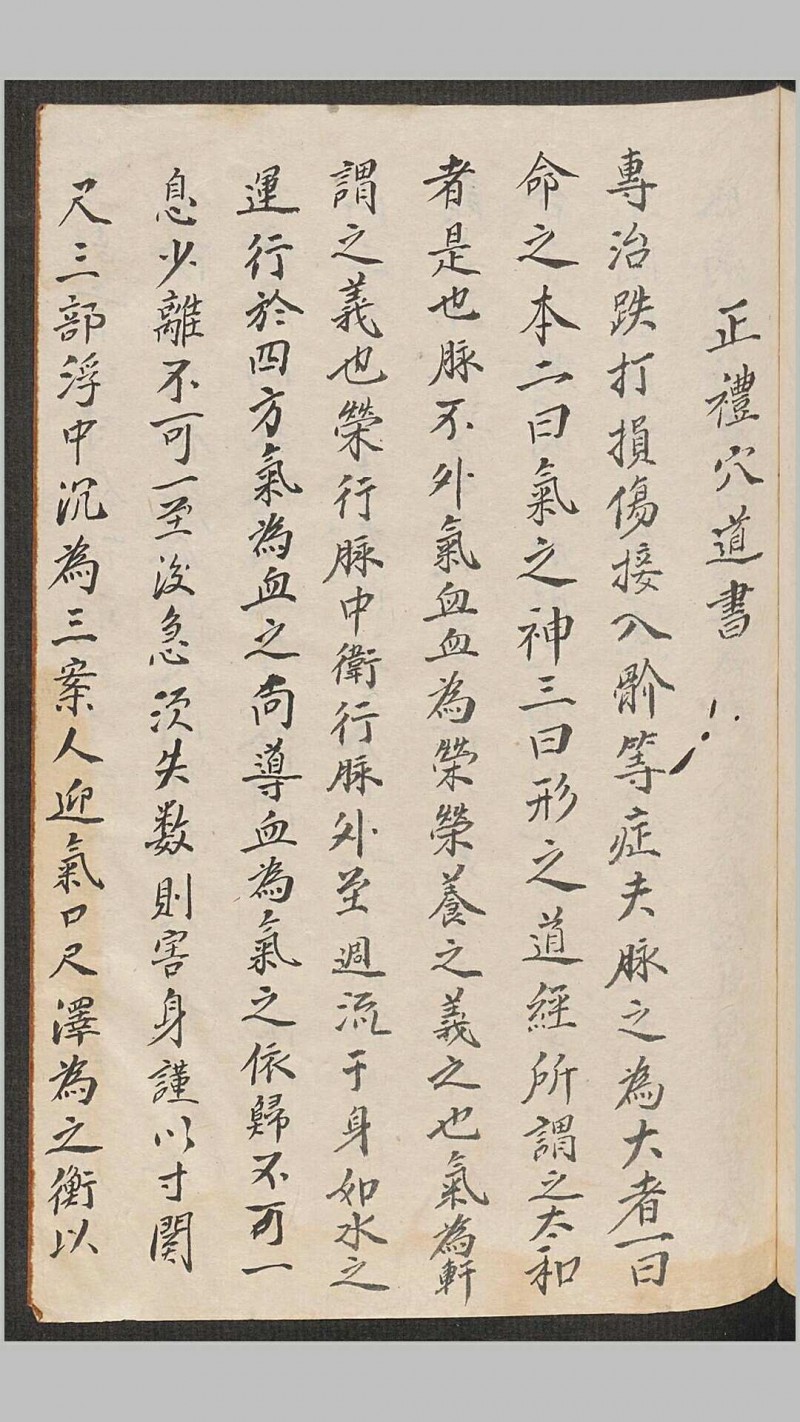 正禮穴道書
專治跌打損傷接入骱等症夫脉之為大者一曰
命之本二曰氣之神三曰形之道經所謂之太和
者是也脉不外氣血血為榮榮養之義之也氣為軒
謂之義也榮行脉中衛行脉外至週流于身如水之
運行於四方氣為血之向導血為氣之依歸不可一
息少離不可一至浚急須失数則害身謹以寸関
尺三部浮中沉為三案人迎氣口尺澤為之衡以